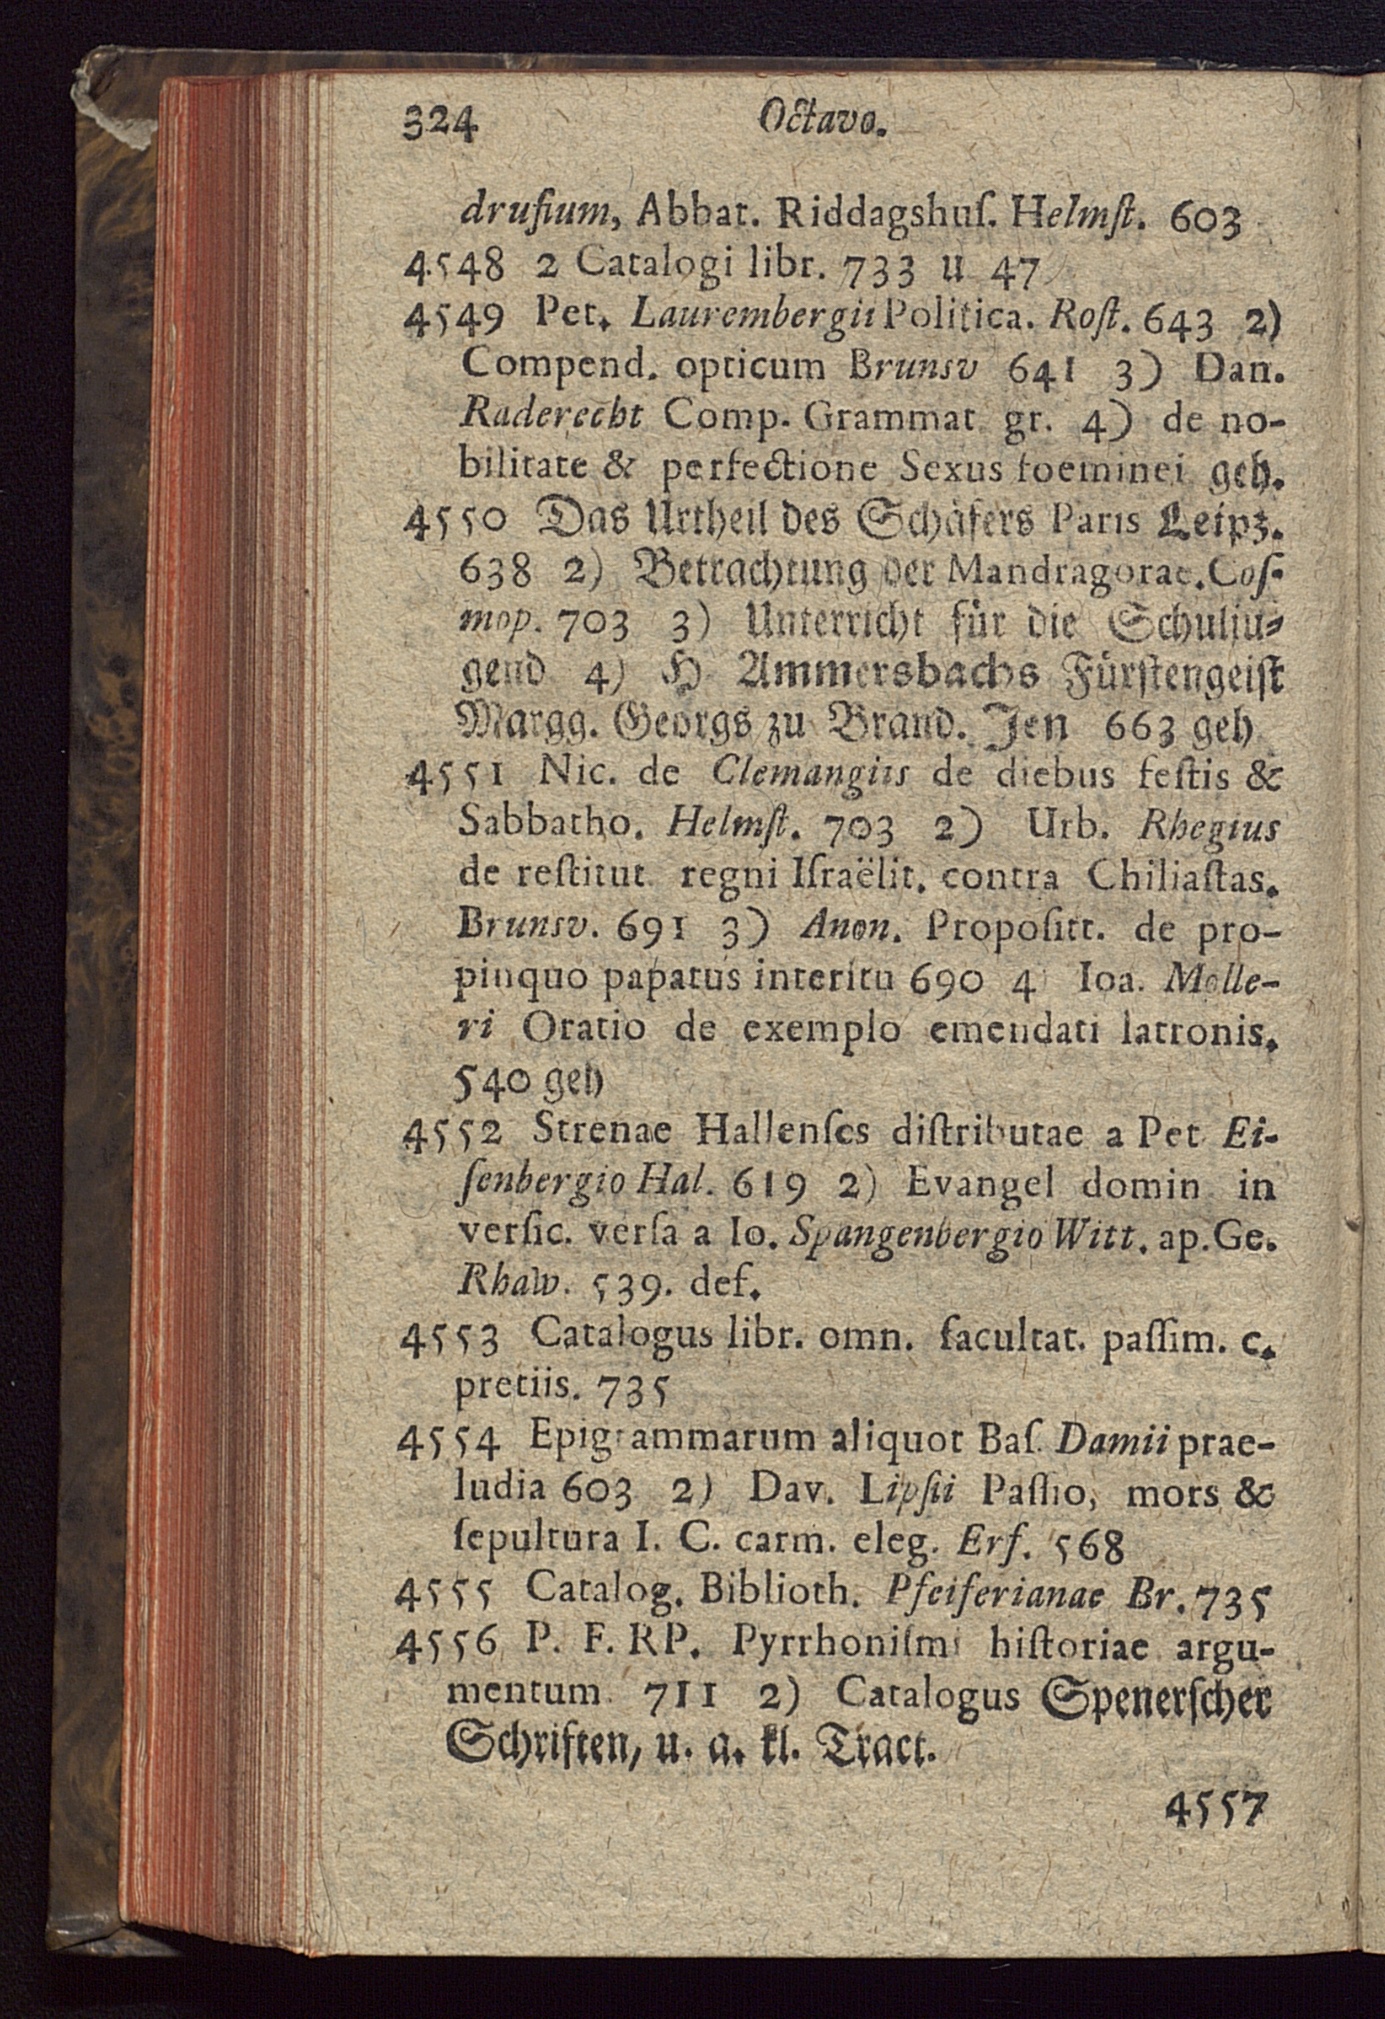 324 Octavo.
drusium, Abbat. Riddagshuſ. Helmſt. 603
4548 2 Catalogi libr. 733 u 47
4549 Pet. Laurembergii Politica. Roſt. 643 2)
Compend. opticum Brunsv 641 3) Dan.
Raderecht Comp. Grammat gr. 4) de no-
bilitate & perfectione Sexus foeminei geh.
4550 Das Urtheil des Schäfers Paris Leipz.
638 2) Betrachtung der Mandragorae. Coſ-
mop. 703 3) Unterricht für die Schulju-
gend 4) H Ammersbachs Fürſtengeiſt
Margg. Georgs zu Brand. Jen 663 geh
4551 Nic. de Clemangiis de diebus feſtis &
Sabbatho. Helmſt. 703 2) Urb. Rhegius
de reſtitut regni Iſraëlit. contra Chiliaſtas.
Brunsv. 691 3) Anon. Propoſitt. de pro-
pinquo papatus interitu 690 4 Ioa. Molle-
ri Oratio de exemplo emendati latronis.
540 geh
4552 Strenae Hallenſes diſtributae a Pet Ei-
ſenbergio Hal. 619 2) Evangel domin in
verſic. verſa a Io. Spangenbergio Witt. ap. Ge.
Rhaw. 539. def.
4553 Catalogus libr. omn. facultat. paſſim. c.
pretiis. 735
4554 Epigrammarum aliquot Baſ. Damii prae-
ludia 603 2) Dav. Lipſii Paſſio, mors &
ſepultura I. C. carm. eleg. Erf. 568
4555 Catalog. Biblioth. Pfeiferianae Br. 735
4556 P. F. RP. Pyrrhoniſmi hiſtoriae argu-
mentum 711 2) Catalogus Spenerſcher
Schriften, u. a. kl. Tract.
4557